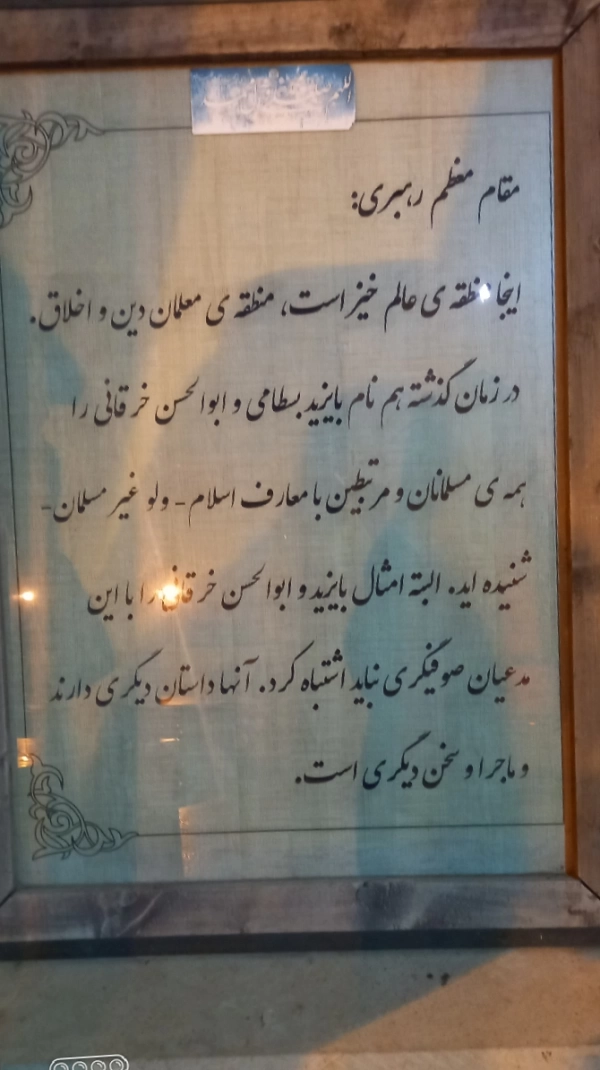 مقام معظم رهبری:
اینجا منطقه ی عالم خیز است، منطقه ی معلمان دین و اخلاق.
در زمان گذشته هم نام بایزید بسطامی و ابوالحسن خرقانی را
همه ی مسلمانان و مرتبطین با معارف اسلام - ولو غیر مسلمان -
شنیده اید. البته امثال بایزید و ابوالحسن خرقانی را با این
مدعیان صوفیگری نباید اشتباه کرد. آنها داستان دیگری دارند
و ماجرا و سخن دیگری است.